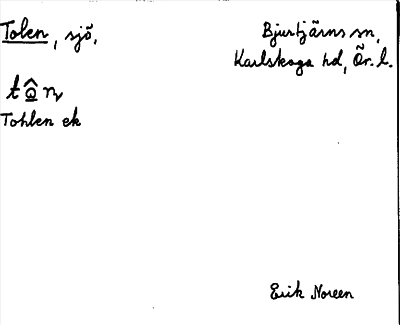 Tolen, sjö.
Bjurtjärns sn,
Karlskoga hd, Ör. l.
Tohlen ek
Erik Noreen